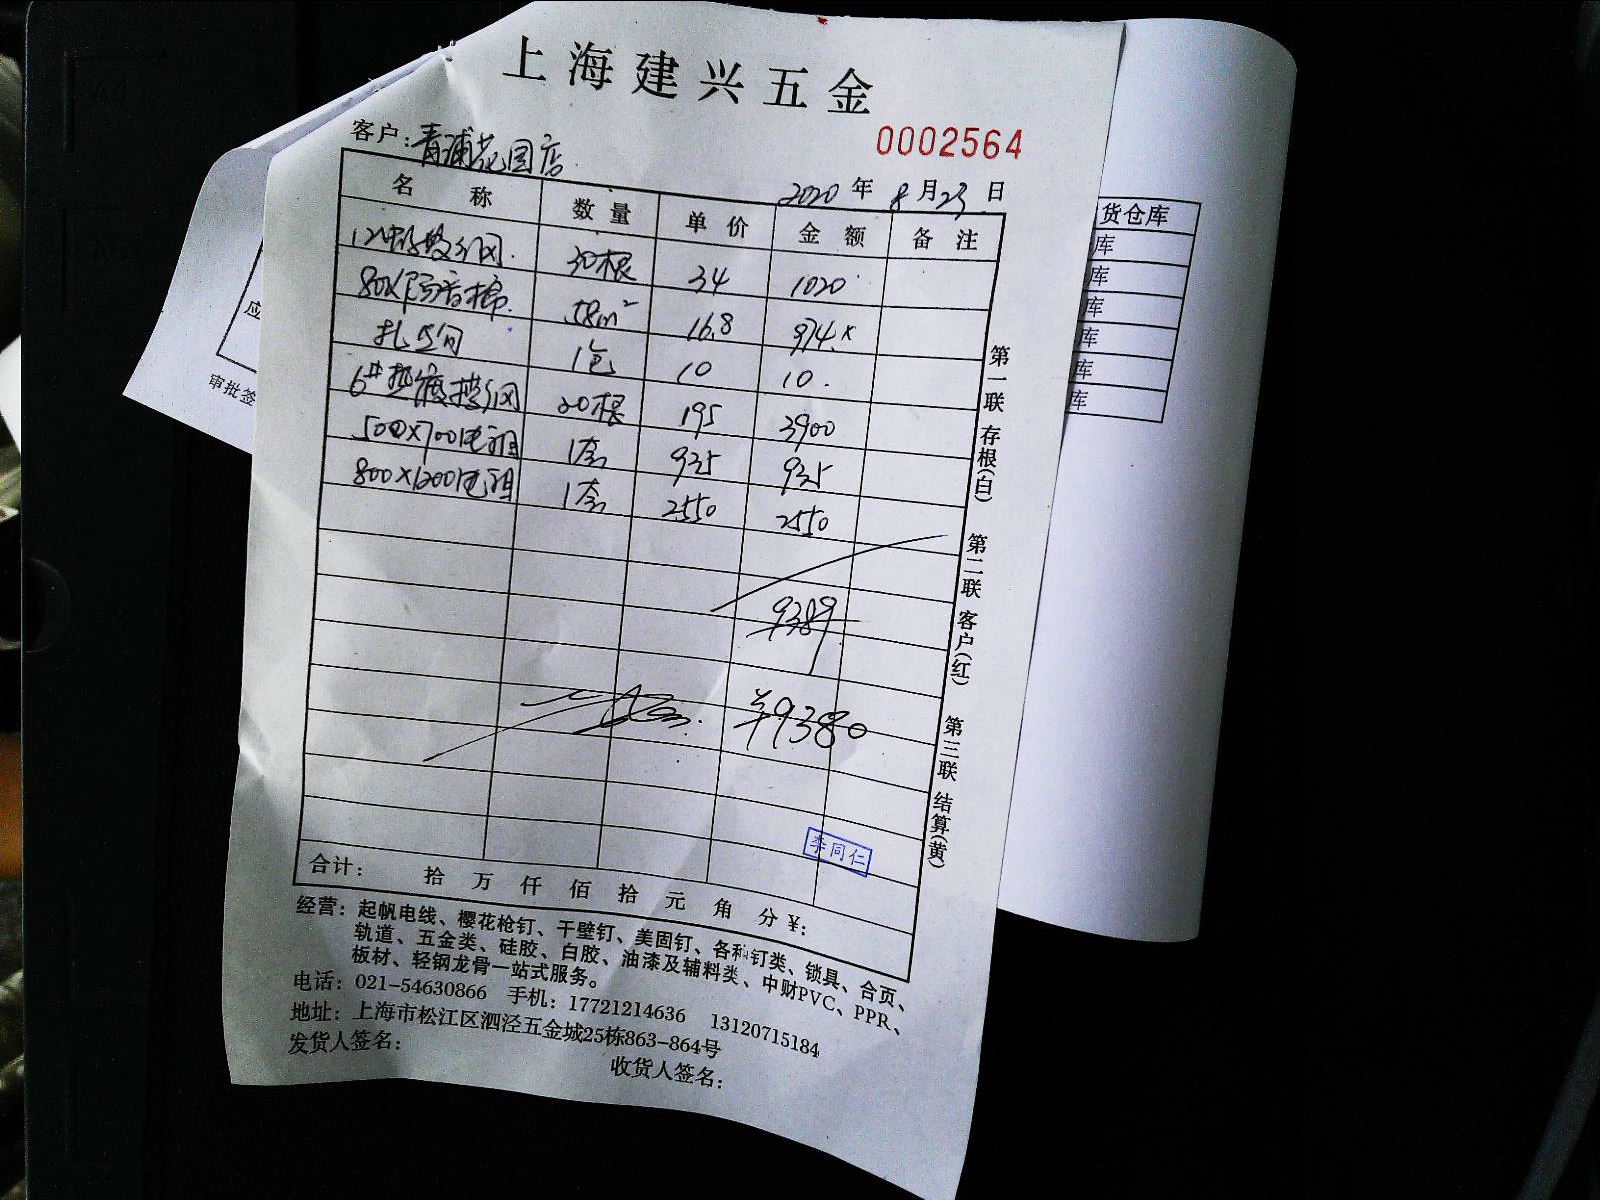 上海建兴五金
0002564
客户：青浦花园店
2020 年 8 月 23 日
名 称 数 量 单 价 金 额 备 注
30根 34 1020
80K隔音棉 58m² 16.8 974.x
1包 10 10.
6#热镀槽钢 20根 195 3900
500×700 1套 935 935
800×1200 1套 2550 2550
9389
¥9380
李同仁
合计： 拾 万 仟 佰 拾 元 角 分 ¥:
经营：起帆电线、樱花枪钉、干壁钉、美固钉、各种钉类、锁具、合页、
轨道、五金类、硅胶、白胶、油漆及辅料类、中财PVC、PPR、
板材、轻钢龙骨一站式服务。
电话：021-54630866 手机：17721214636 13120715184
地址：上海市松江区泗泾五金城25栋863-864号
发货人签名：
收货人签名：
第一联 存根(白) 第二联 客户(红) 第三联 结算(黄)
货仓库
库
库
库
库
库
库
应
审批签